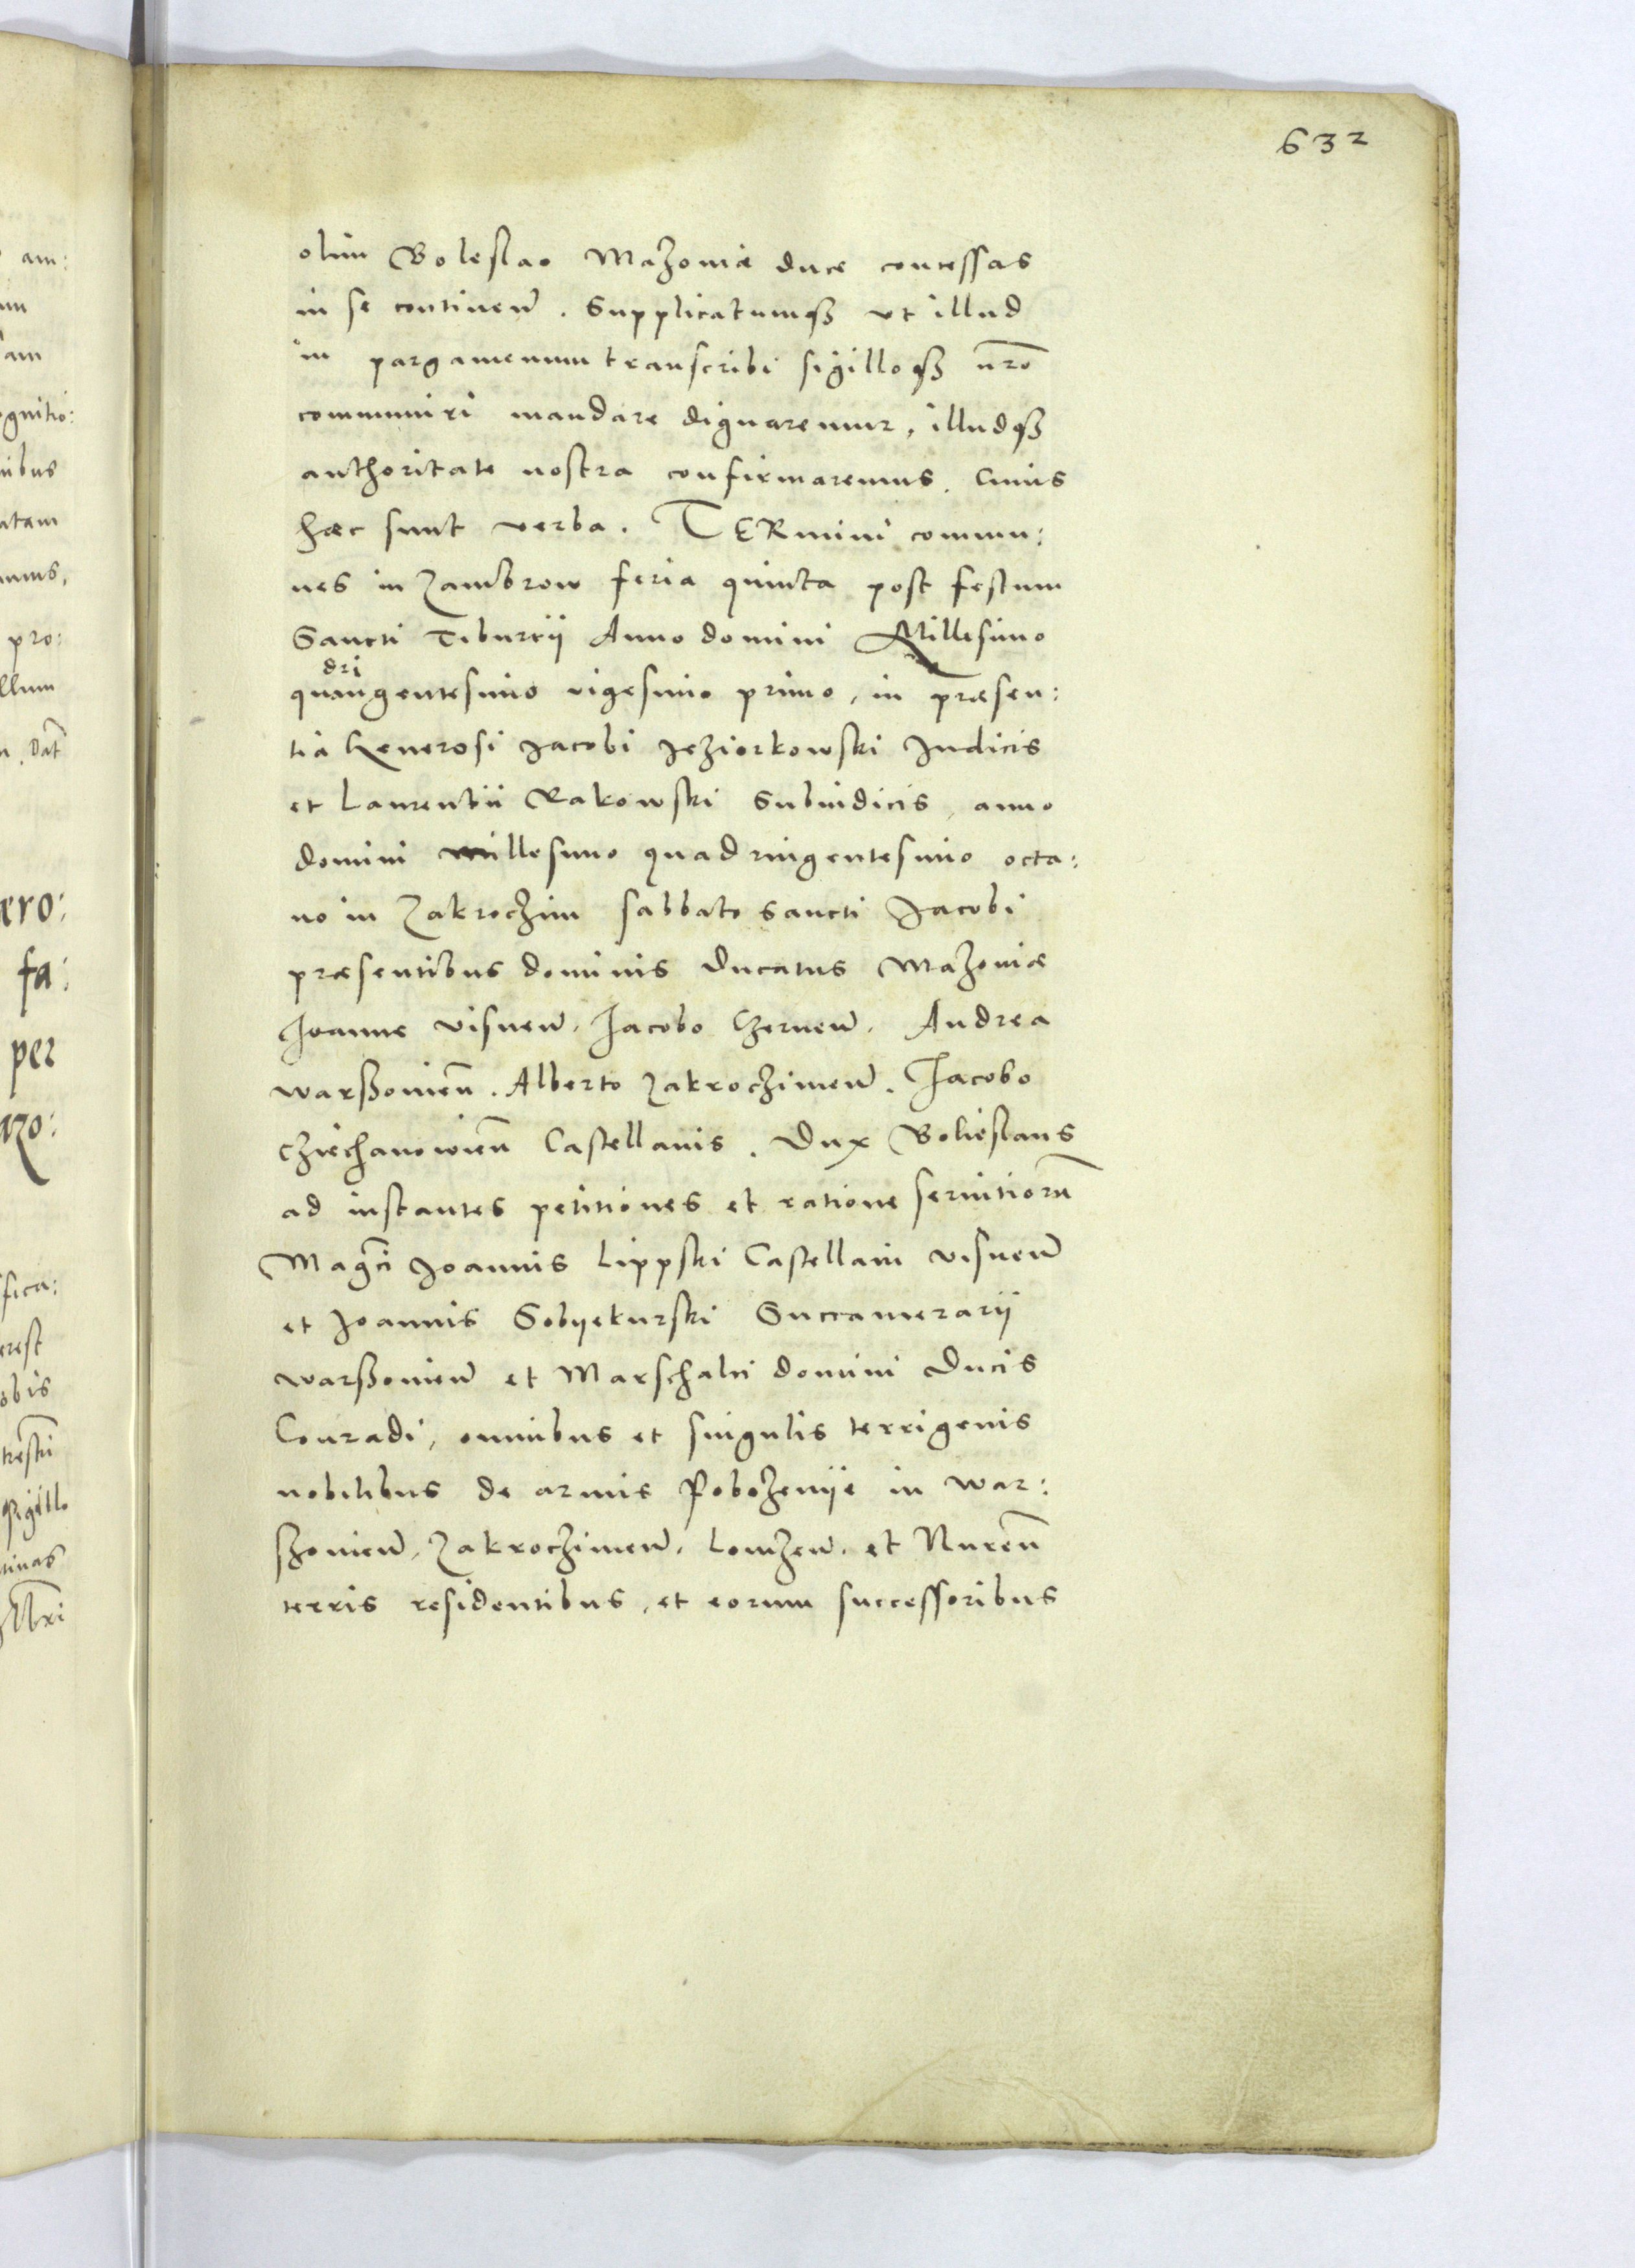 632
olim Boleslao Mazoviæ duce concessas
in se continen̄. Supplicatumq3 vt illud
in pargamenum transcribi sigilloq3 nr̄o
communiri mandare dignaremur, illudq3
authoritate nostra confirmaremus. Cuius
hæc sunt verba. TERmini commu:
nes in Zambrow feria quinta post festum
Sancti Tiburcij Anno domini Millesimo
dri
quangentesimo vigesimo primo, in præsen:
tia Generosi Jacobi Jeziorkowski Judicis
et Laurentii Rakowski Subiudicis, anno
domini millesimo quadringentesimo octa:
uo in Zakroczim sabbato sancti Jacobi
præsentibus dominis Ducatus Mazoviæ
Joanne Visnen̄. Jacobo Czernen̄. Andrea
warßouien̄. Alberto Zakroczimen̄. Jacobo
Cziechanowien̄ Castellanis. Dux Bolieslaus
ad instantes petitiones et ratione seruitioru̅
Mag̅ci Joannis Lippski Castellani Visnen̄
et Joannis Sobyekurski Succamerarij
warßouien̄ et Marschalci domini Ducis
Conradi, omnibus et singulis terrigenis
nobilibus de armis Pobozenije in war:
szouien̄, Zakroczimen̄, Lomzen̄. et Nuren̄
terris residentibus, et eorum successoribus
am:
am
ognitio:
nibus
atam
pro:
llum
Dat̄
ero:
fa:
per
azo:
fica:
erest
obis